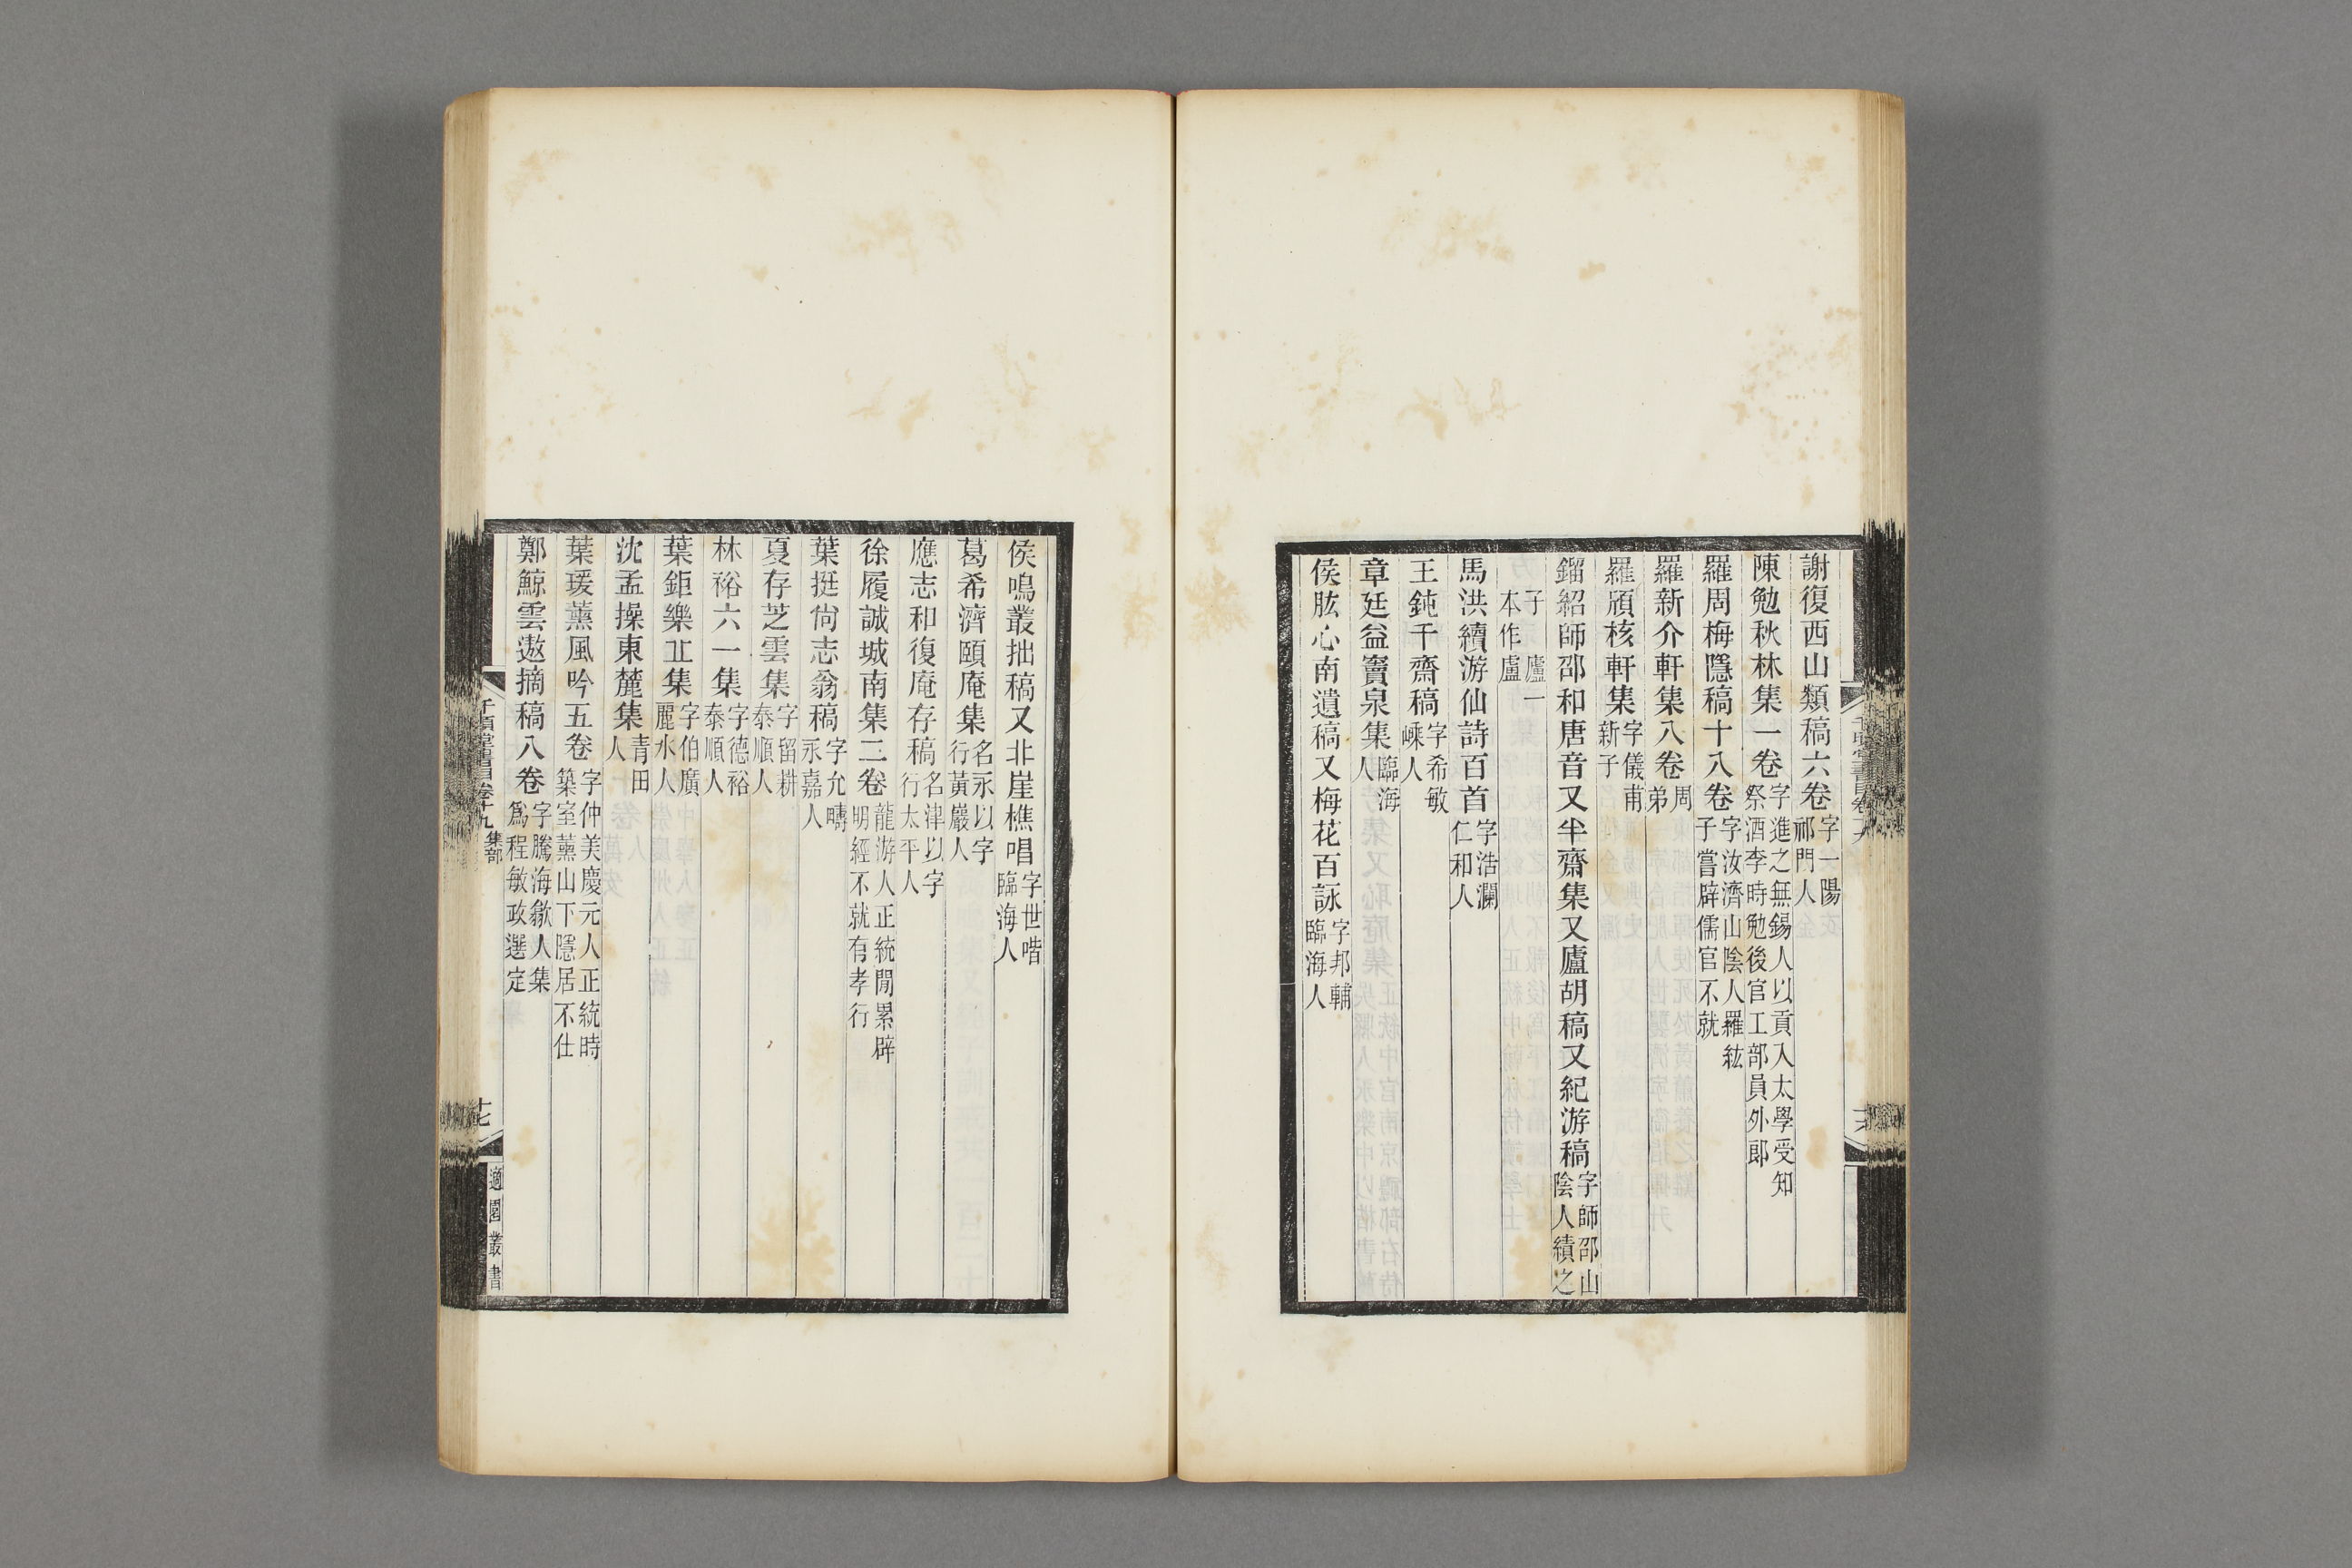 謝復西山類稿六卷字一陽祁門人
陳勉秋林集一卷字進之無錫人以貢入太學受知祭酒李時勉後官工部員外郎
羅周梅隱稿十八卷字汝濟山陰人羅紘子嘗辟儒官不就
羅新介軒集八卷周弟
羅頎核軒集字儀甫新子
鎦紹師邵和唐音又半齋集又廬胡稿又紀游稿字師邵山陰人績之
子 廬一本作盧
馬洪續游仙詩百首字浩瀾仁和人
王鈍千齋稿字希敏嵊人
章廷益竇泉集臨海人
侯肱心南遺稿又梅花百詠字邦輔臨海人
侯鳴叢拙稿又北崖樵唱字世喈臨海人
葛希濟頤庵集名永以字行黃巖人
應志和復庵存稿名津以字行太平人
徐履誠城南集二卷龍游人正統閒累辟明經不就有孝行
葉挺尙志翁稿字允疇永嘉人
夏存芝雲集字留耕泰順人
林裕六一集字德裕泰順人
葉鉅樂丘集字伯廣麗水人
沈孟操東麓集青田人
葉瑗薰風吟五卷字仲美慶元人正統時築室薰山下隱居不仕
鄭鯨雲遨摘稿八卷字騰海歙人集爲程敏政選定
千頃堂書目卷十九 集部
十七
適園叢書